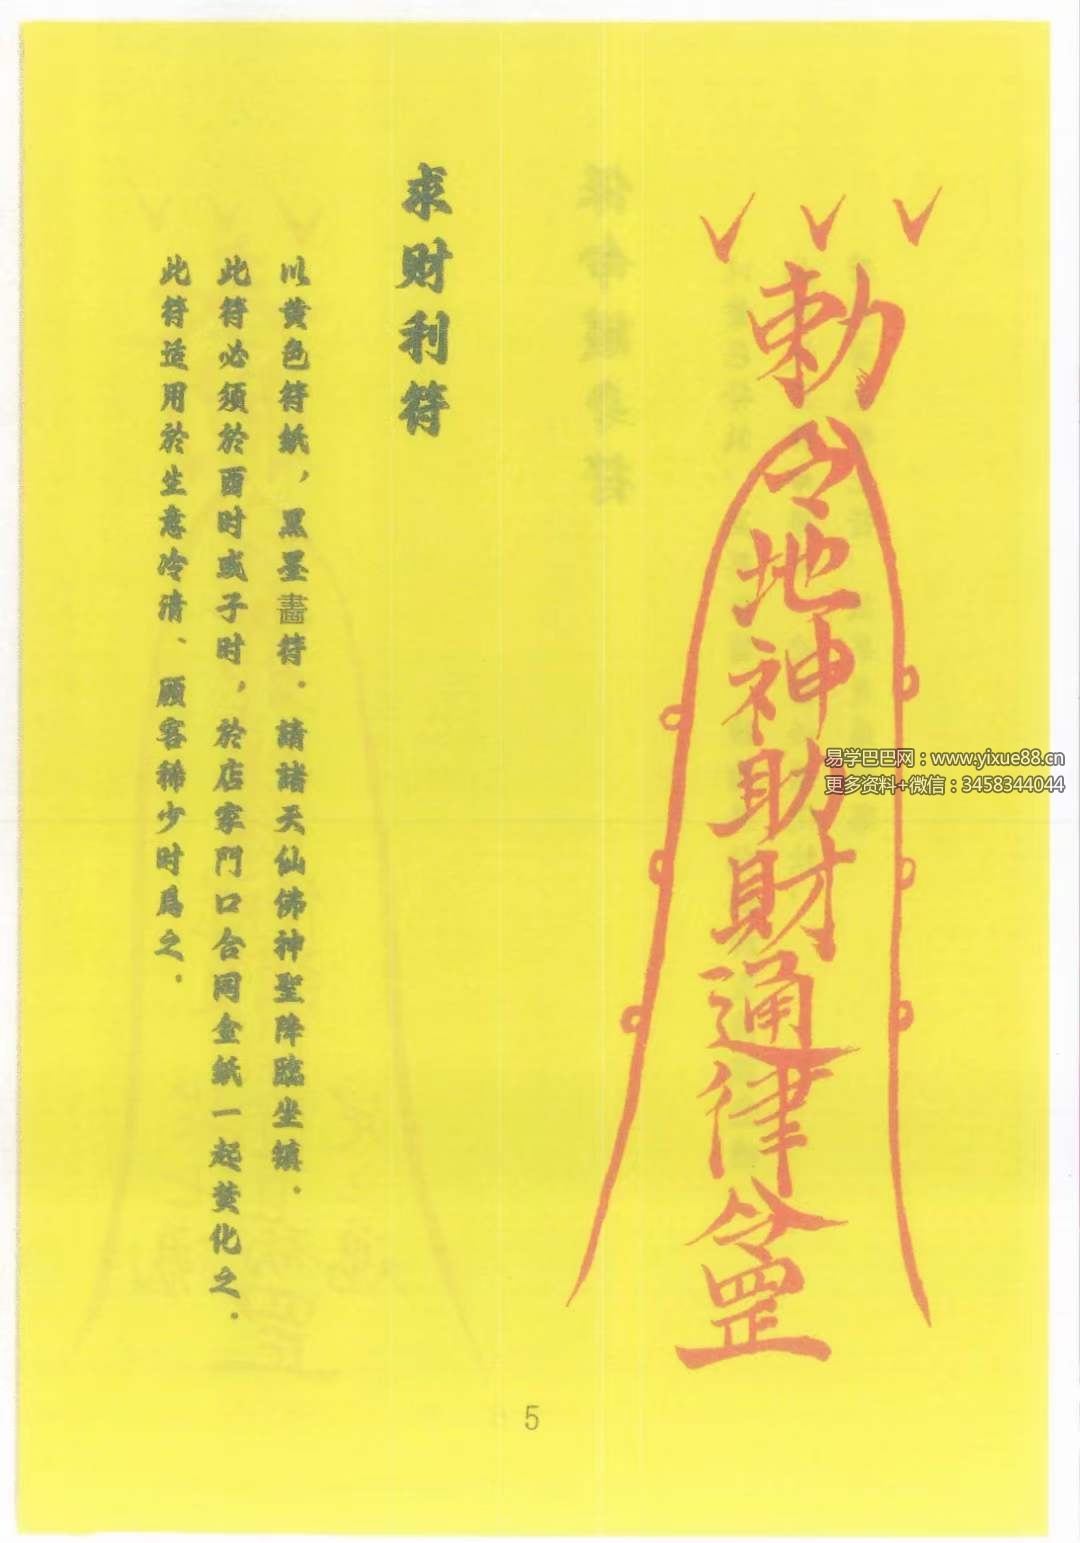 勅令地神助財通律令罡
求财利符
以黄色符紙，黑墨畵符．請諸天仙佛神聖降臨坐镇．
此符必须於酉时或子时，於店家門口合同金紙一起焚化之．
此符适用於生意冷清、顾客稀少时爲之．
易学巴巴网：www.yixue88.cn
更多资料+微信：3458344044
5